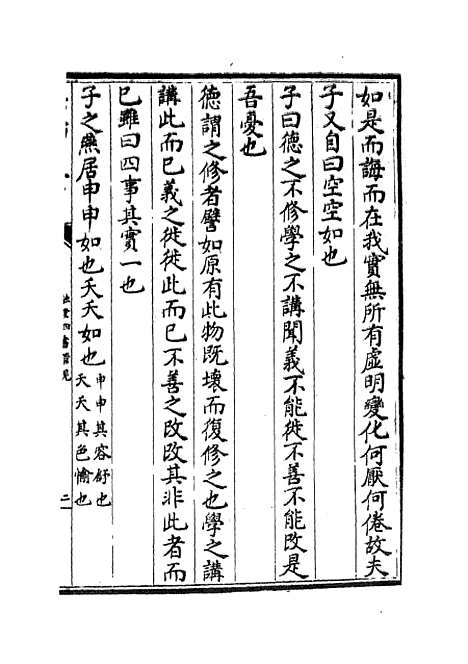 如是而誨而在我實無所有虛明變化何厭何倦故夫
子又自曰空空如也
子曰德之不修學之不講聞義不能徙不善不能改是
吾憂也
德謂之修者譬如原有此物既壞而復修之也學之講
講此而已義之徙徙此而已不善之改改其非此者而
已雖曰四事其實一也
子之燕居申申如也夭夭如也申申其容舒也
夭夭其色愉也
融堂四書管見
二